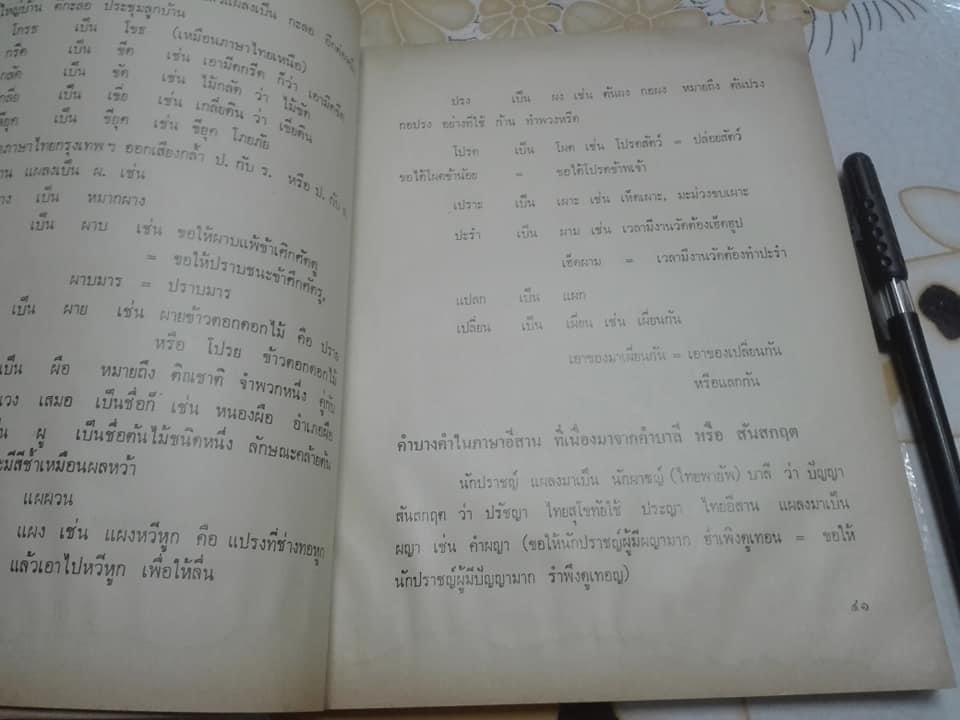 แผลงเป็น กะลอ
ใหญ่บ้าน ตีกะลอ ประชุมลูกบ้าน
โกรธ เป็น โขธ (เหมือนภาษาไทยเหนือ)
กรีด เป็น ขีด เช่น เอามีดกรีด ก็ว่า เอามีดขีด
กลัด เป็น ขัด เช่น ไม้กลัด ว่า ไม้ขัด
เป็น เขี่ย เช่น เกลี่ยดิน ว่า เขี่ยดิน
เป็น ขียุค เช่น ขียุค โภยภัย
ภาษาไทยกรุงเทพฯ ออกเสียงกล้ำ ป. กับ ร. หรือ ป. กับ ล.
แผลงเป็น ผ. เช่น
เป็น หมากผาง
เป็น ผาบ เช่น ขอให้ผาบแพ้ข้าเศิกศัตตู
= ขอให้ปราบชนะข้าศึกศัตรู,
ผาบมาร = ปราบมาร
เป็น ผาย เช่น ผายข้าวตอกดอกไม้ คือ ปราย
หรือ โปรย ข้าวตอกดอกไม้
เป็น ผือ หมายถึง ติณชาติ จำพวกหนึ่ง คู่กับ
เสมอ เป็นชื่อก็ เช่น หนองผือ อำเภอผือ
ผู เป็นชื่อต้นไม้ชนิดหนึ่ง ลักษณะคล้ายต้น
มีสีช้ำเหมือนผลหว้า
แผผวน
แผง เช่น แผงหวีหูก คือ แปรงที่ช่างทอหูก
แล้วเอาไปหวีหูก เพื่อให้ลื่น
ปรง เป็น ผง เช่น ต้นผง กอผง หมายถึง ต้นปรง
กอปรง อย่างที่ใช้ ก้าน ทำพวงหรีด
โปรด เป็น โผด เช่น โปรดสัตว์ = ปล่อยสัตว์
ขอได้โผดข้าน้อย = ขอได้โปรดข้าพเจ้า
เปราะ เป็น เผาะ เช่น เห็ดเผาะ, มะม่วงขบเผาะ
ปะรำ เป็น ผาม เช่น เวลามีงานวัดต้องเฮ็ดฮูป
เฮ็ดผาม = เวลามีงานวัดต้องทำปะรำ
แปลก เป็น แผก
เปลี่ยน เป็น เผี่ยน เช่น เผี่ยนกัน
เอาของมาเผี่ยนกัน = เอาของเปลี่ยนกัน
หรือแลกกัน
คำบางคำในภาษาอีสาน ที่เนื่องมาจากคำบาลี หรือ สันสกฤต
นักปราชญ์ แผลงมาเป็น นักผาชญ์ (ไทยพายัพ) บาลี ว่า ปัญญา
สันสกฤต ว่า ปรัชญา ไทยสุโขทัยใช้ ประญา ไทยอีสาน แผลงมาเป็น
ผญา เช่น คำผญา (ขอให้นักปราชญ์ผู้มีผญามาก ฮ่ำเพิงดูเทอน = ขอให้
นักปราชญ์ผู้มีปัญญามาก รำพึงดูเทอญ)
๔๑